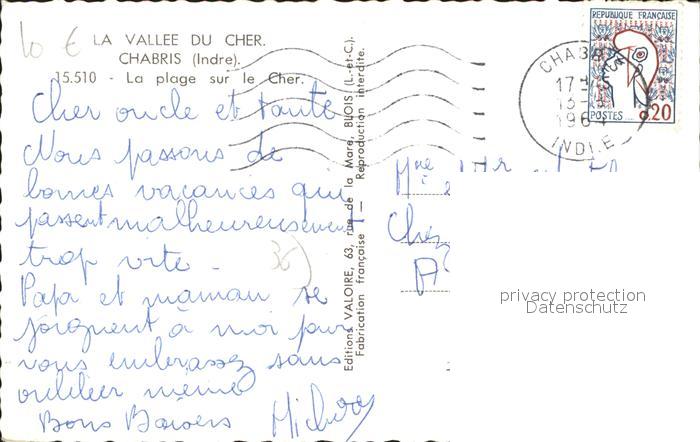 10 €
LA VALLEE DU CHER.
CHABRIS (Indre).
15.510 - La plage sur le Cher.
Cher oncle et tante
Nous passons de
bonnes vacances qui
passent malheureusement
trop vite -
Papa et maman se
joignent à moi pour
vous embrasser sans
oublier mémé
Bons Baisers
Editions VALOIRE, 63, rue de la Mare, BLOIS (L.-et-C.).
Fabrication française — Reproduction interdite.
REPUBLIQUE FRANÇAISE
POSTES 0,20
CHAB
17
13
196
INDRE
Chez
privacy protection
Datenschutz